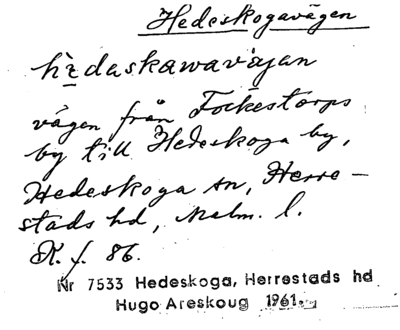 Hedeskogavägen
hedaskawavä̀jan
vägen från Fockestorps
by till Hedeskoga by,
Hedeskoga sn, Herre-
stads hd, Malm. l.
K. f. 86.
Nr 7533 Hedeskoga, Herrestads hd
Hugo Areskoug 1961.